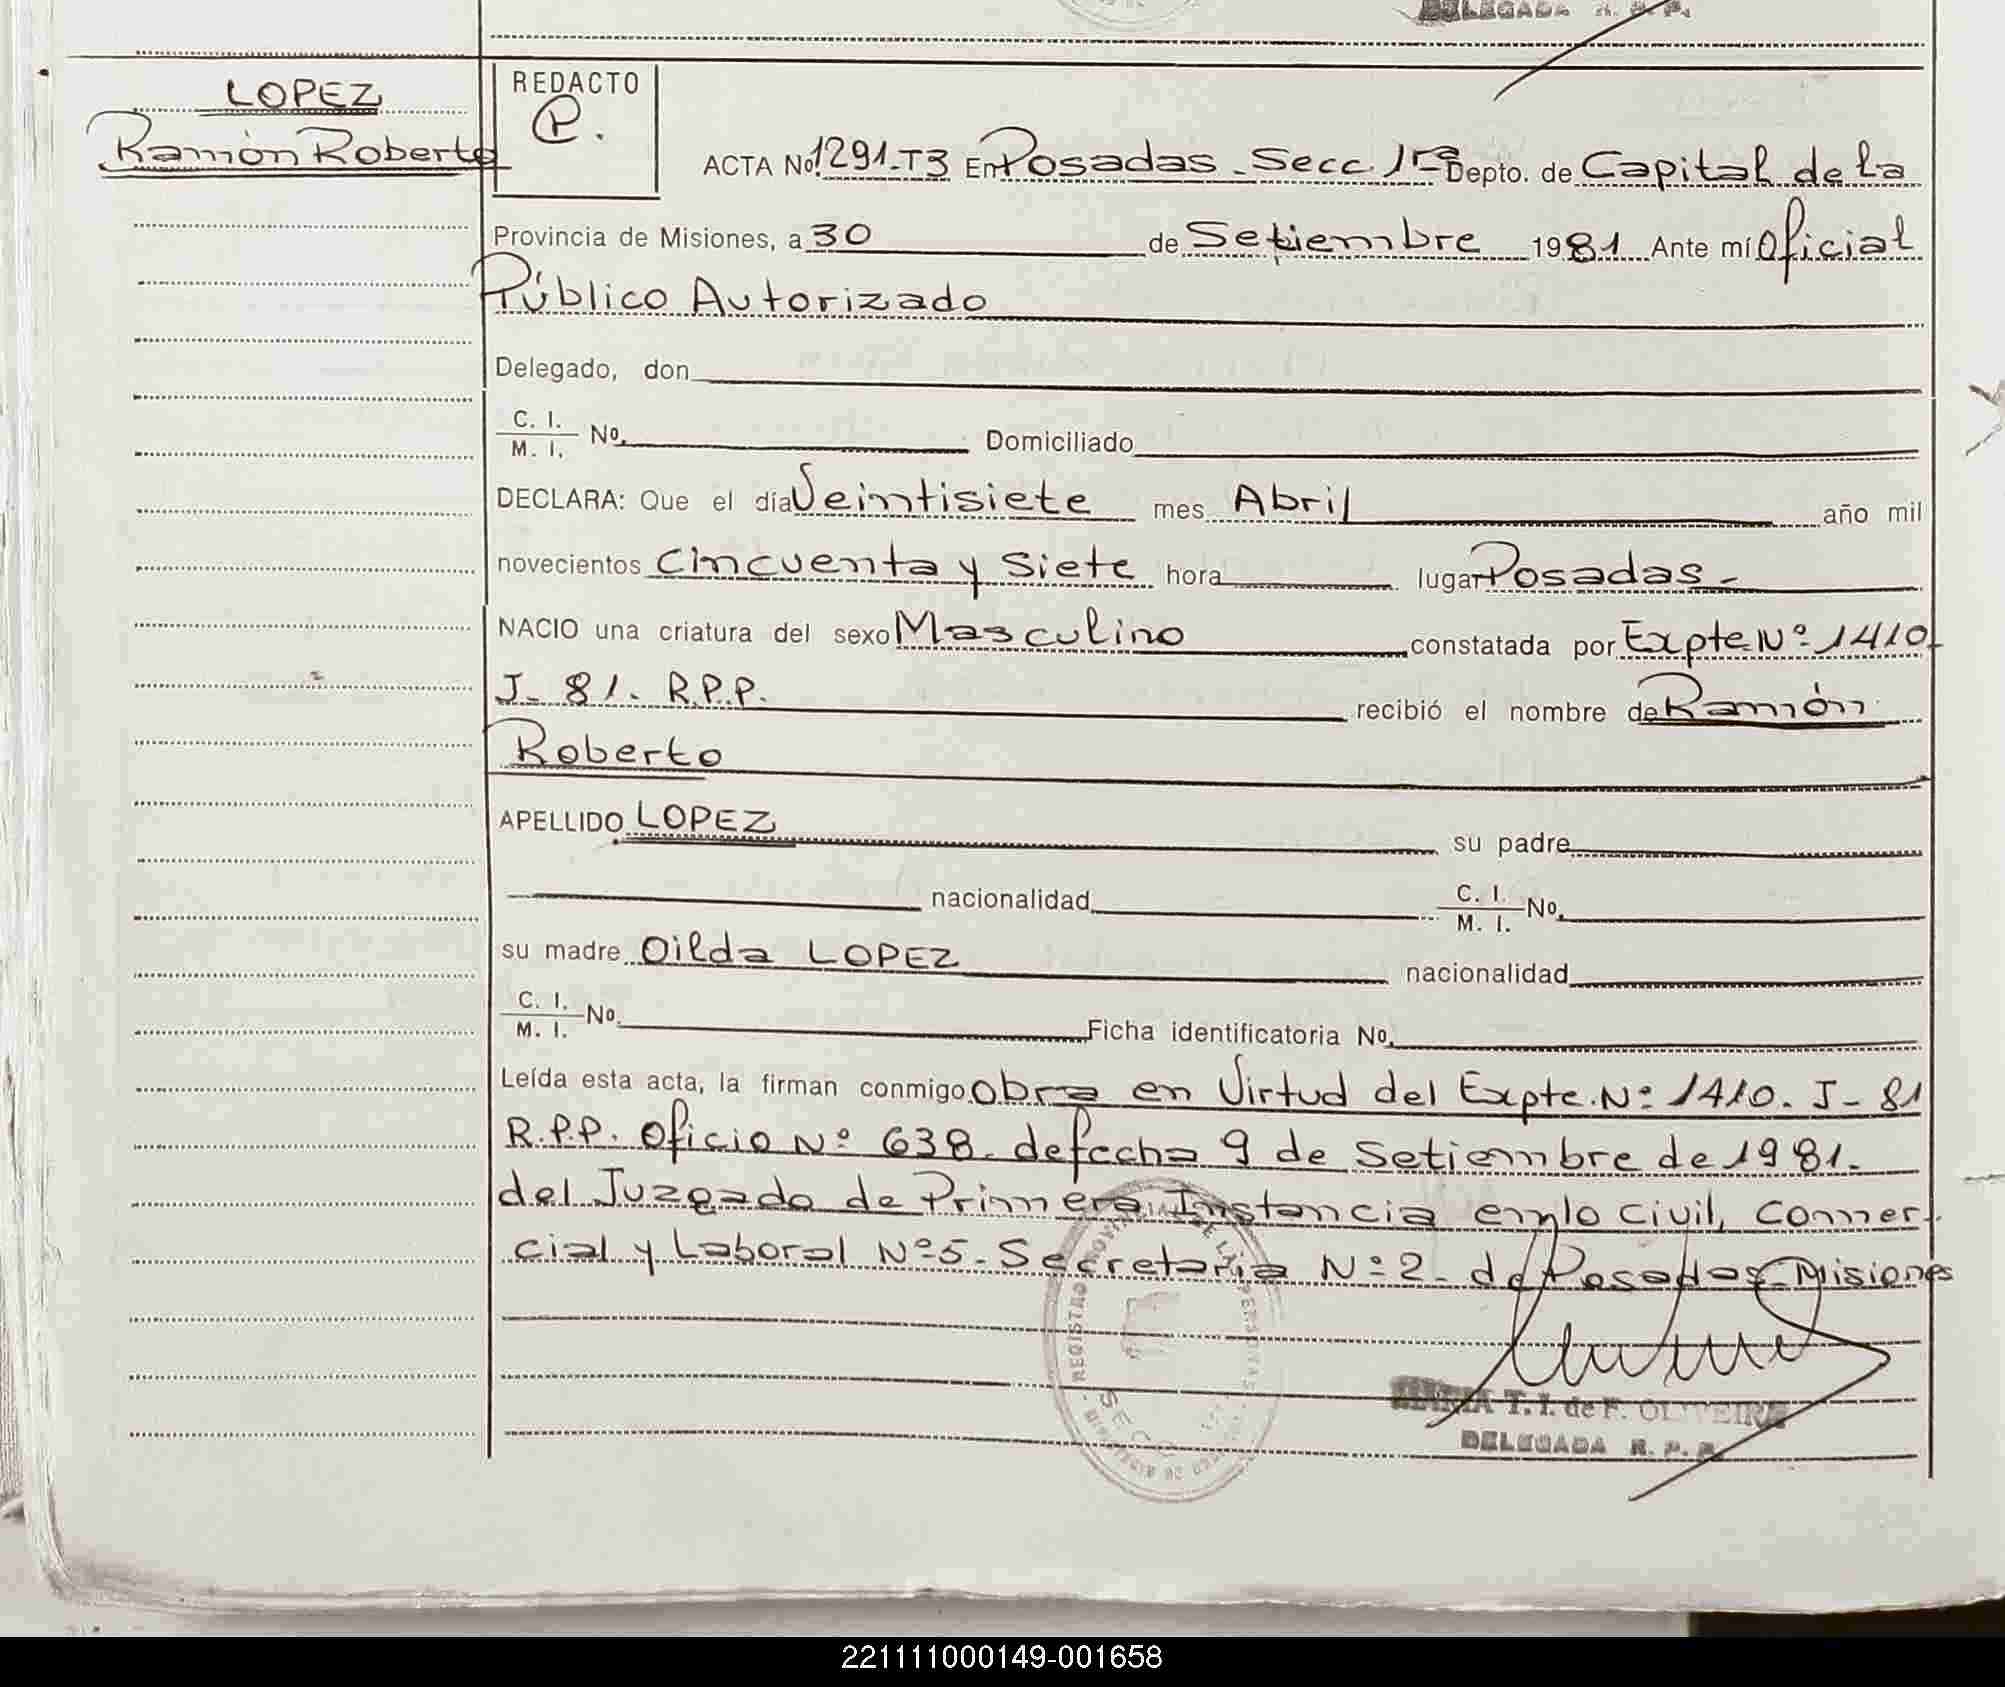 DELEGADA R. P. P.
LOPEZ
Ramón Roberto
REDACTO
P.
ACTA No. 1291-T3 En Posadas - Secc. 1ra Depto. de Capital de la
Provincia de Misiones, a 30 de Setiembre 1981 Ante mí Oficial
Público Autorizado
Delegado, don
C. I.
M. I. No.
Domiciliado
DECLARA: Que el día Veintisiete mes Abril año mil
novecientos Cincuenta y Siete hora lugar Posadas-
NACIO una criatura del sexo Masculino constatada por Expte Nº 1410-
J- 81. R.P.P. recibió el nombre de Ramón
Roberto
APELLIDO LOPEZ su padre
nacionalidad C. I.
M. I. No.
su madre Oilda LOPEZ nacionalidad
C. I.
M. I. No. Ficha identificatoria No.
Leída esta acta, la firman conmigo Obra en Virtud del Expte. Nº 1410. J- 81
R.P.P. Oficio Nº 638. de fecha 9 de Setiembre de 1981.
del Juzgado de Primera Instancia en lo Civil, Comer-
cial y Laboral Nº 5- Secretaria Nº 2- de Posadas- Misiones
REGISTRO PROVINCIAL DE LAS PERSONAS
SECC
MARIA T. I. de F. OLIVEIRA
DELEGADA R. P. P.
221111000149-001658